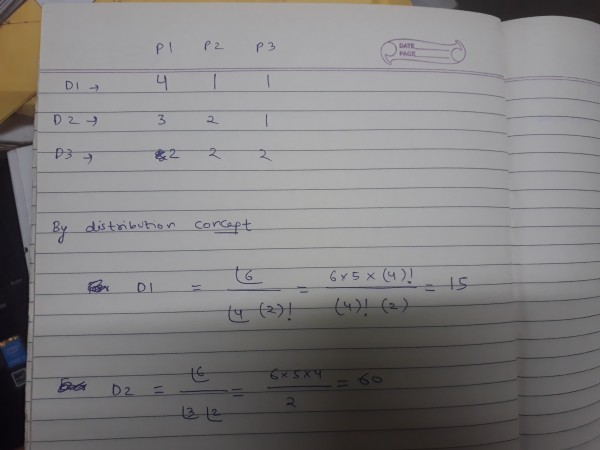 DATE
PAGE
P1 P2 P3
D1 → 4 1 1
D2 → 3 2 1
D3 → 2 2 2
By distribution concept
D1 = ⌊6 / ⌊4 (2)! = 6×5×(4)! / (4)! (2) = 15
D2 = ⌊6 / ⌊3 ⌊2 = 6×5×4 / 2 = 60